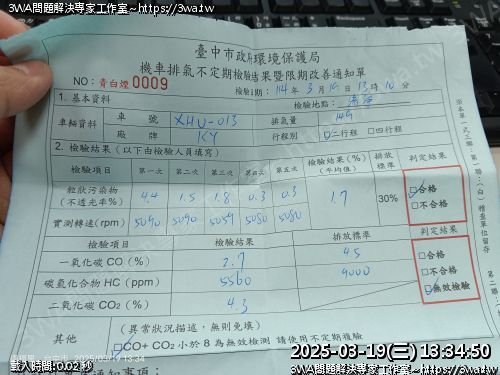 3WA問題解決專家工作室~https://3wa.tw
3WA問題解決專家工作室~https://3wa.tw
臺中市政府環境保護局
機車排氣不定期檢驗結果暨限期改善通知單
NO:青白煙0009
檢驗日期: 114年3月19日13時10分
1. 基本資料
檢驗地點:
車輛資料 車號 XHU-013 排氣量 149
廠牌 KY 行程別 ☑二行程 □四行程
2. 檢驗結果(以下由檢驗人員填寫)
檢驗項目 第一次 第二次 第三次 第四次 第五次 檢驗結果(%)(平均值) 排放標準 判定結果
粒狀污染物(不透光率%) 4.4 1.5 1.8 0.3 0.3 1.7 30% ☑合格 □不合格
實測轉速(rpm) 5090 5090 5059 5080 5080
檢驗項目 檢驗結果 排放標準 判定結果
一氧化碳CO(%) 2.7 4.5 □合格
碳氫化合物HC(ppm) 5560 9000 □不合格
二氧化碳CO2(%) 4.3 ☑無效檢驗
其他 (異常狀況描述,無則免填)
☑CO+CO2小於8為無效檢測 請使用不定期複驗
※本單一式三聯:第一聯:(白)稽查單位留存
第二聯
2025/03/19 13:34
載入時間:0.02秒
2025-03-19(三) 13:34:50
3WA問題解決專家工作室~https://3wa.tw